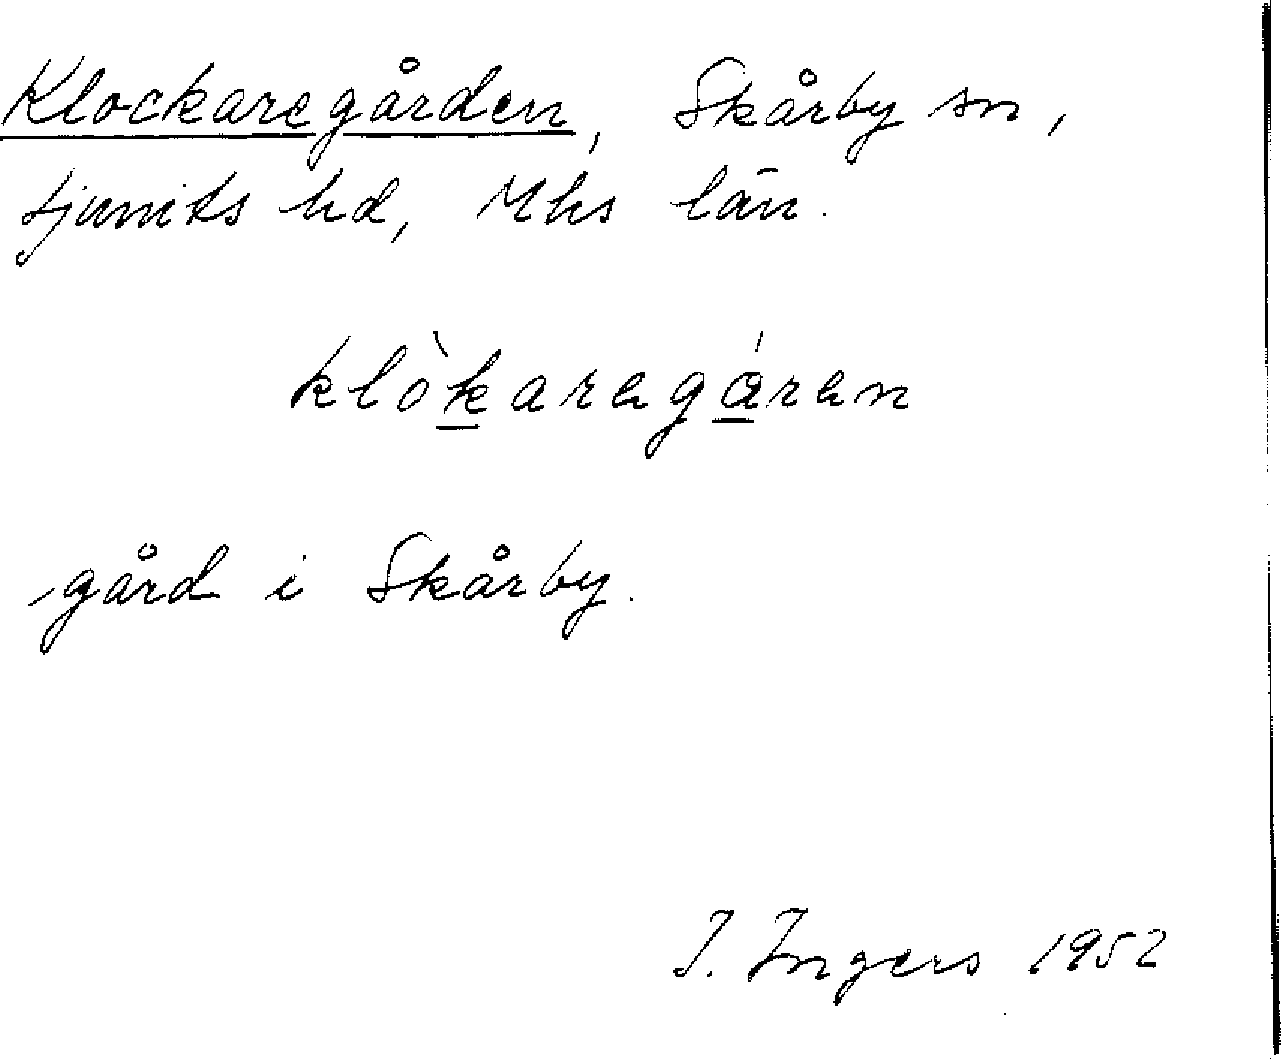 Klockaregården, Skårby sn,
Ljunits hd, Mhs län.
klòkaregáren
gård i Skårby.
I. Ingers 1952